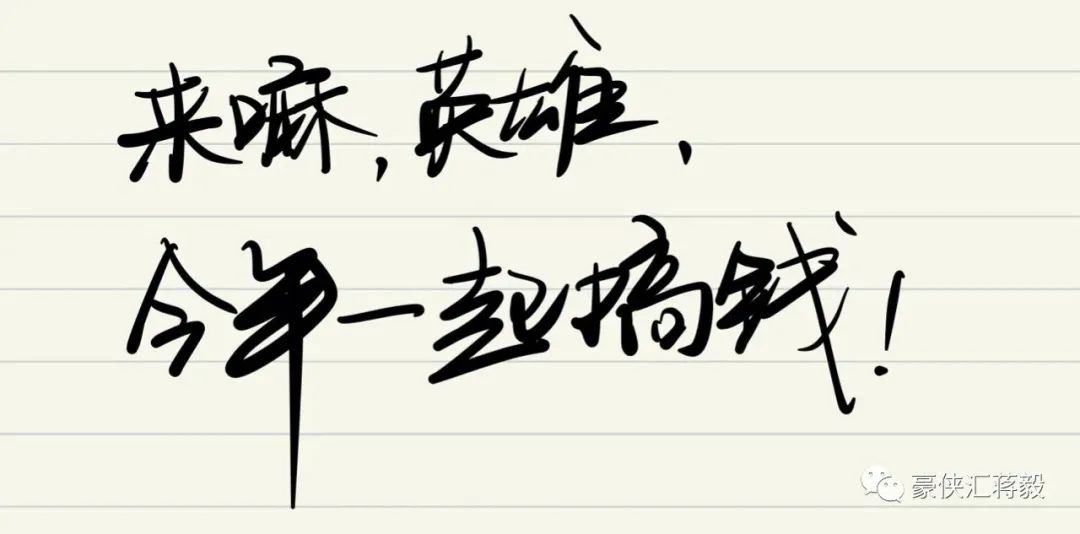 来嘛,英雄,
今年一起搞钱!
豪侠汇蒋毅